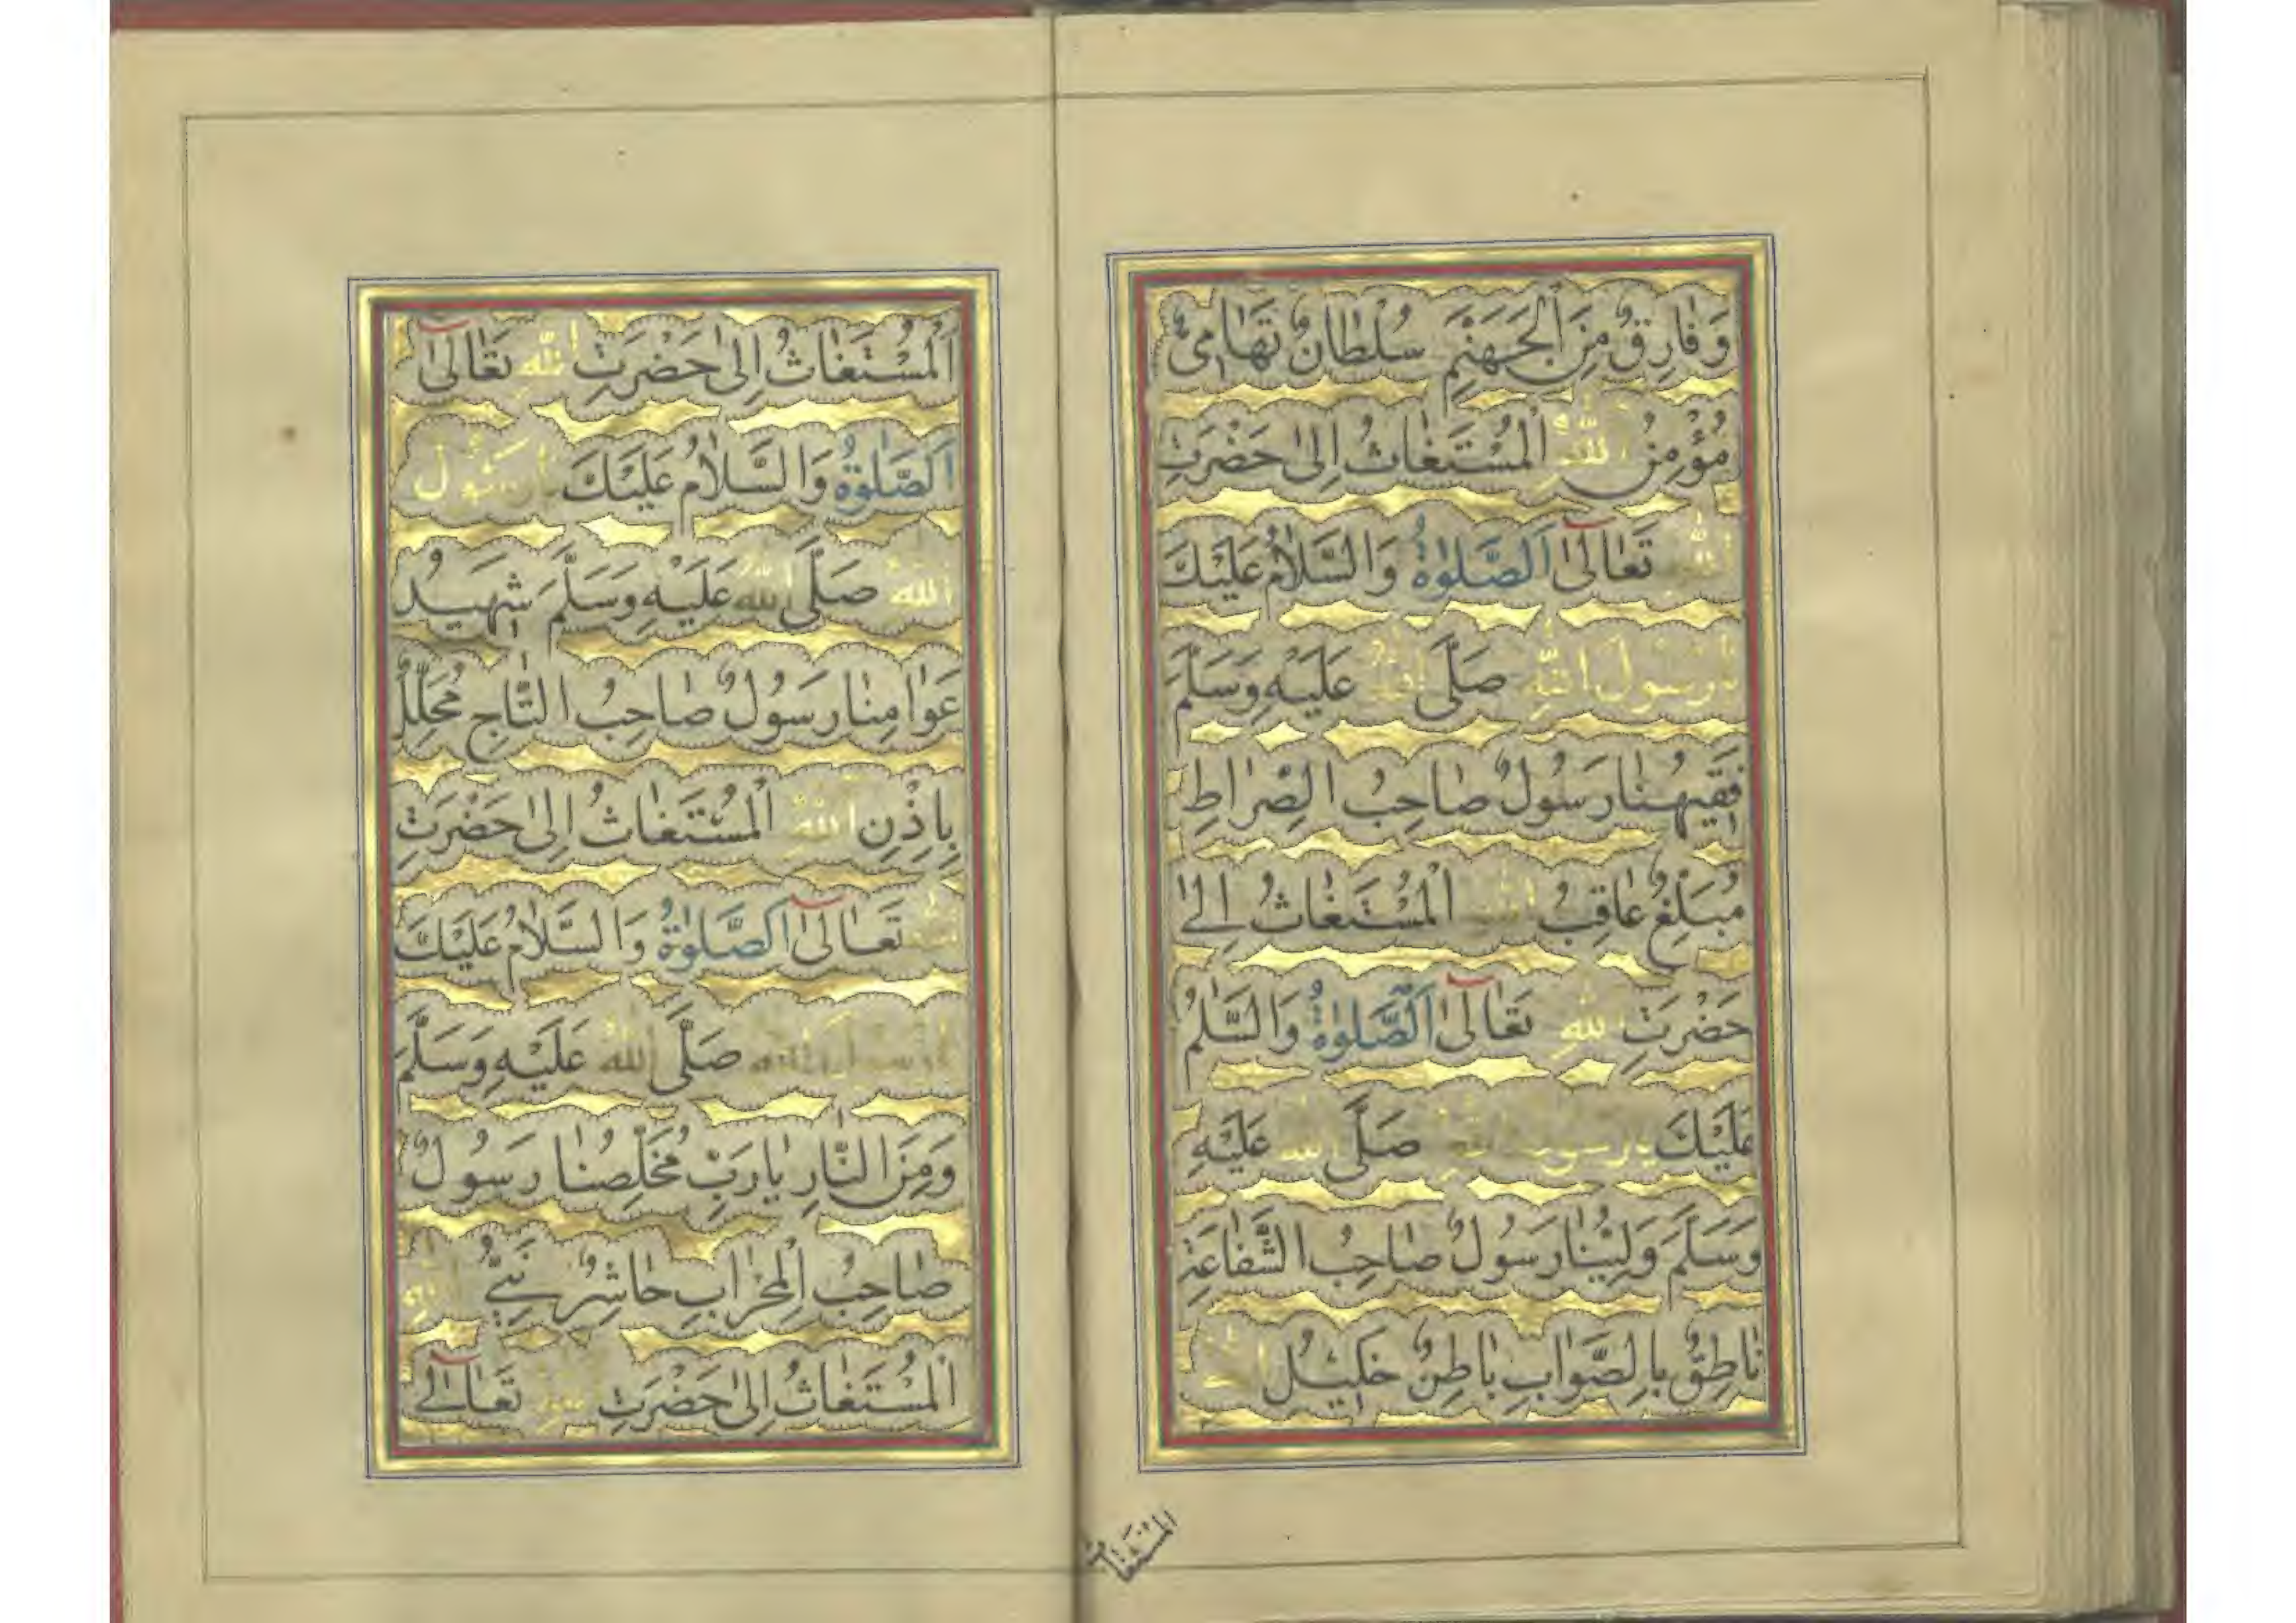 وَفَارِقٌ مِنَ الْجَهَنَّمِ سُلْطَانٌ تَهَامِيٌّ
مُؤْمِنُ اللهِ اَلْمُسْتَغَاثُ اِلٰى حَضْرَتِ
اللهِ تَعَالٰى اَلصَّلٰوةُ وَالسَّلَامُ عَلَيْكَ
يَا رَسُولَ اللهِ صَلَّى اللهُ عَلَيْهِ وَسَلَّمَ
فَقِيهُنَا رَسُولٌ صَاحِبُ الصِّرَاطِ
مُبَلِّغٌ عَاقِبُ اللهِ اَلْمُسْتَغَاثُ اِلٰى
حَضْرَتِ اللهِ تَعَالٰى اَلصَّلٰوةُ وَالسَّلٰمُ
عَلَيْكَ يَا رَسُولَ اللهِ صَلَّى اللهُ عَلَيْهِ
وَسَلَّمَ وَلِيُّنَا رَسُولٌ صَاحِبُ الشَّفَاعَةِ
نَاطِقٌ بِالصَّوَابِ بَاطِنٌ خَلِيلُ اللهِ
اَلْمُسْتَغَاثُ
اَلْمُسْتَغَاثُ اِلٰى حَضْرَتِ اللهِ تَعَالٰى
اَلصَّلٰوةُ وَالسَّلَامُ عَلَيْكَ يَا رَسُولَ
اللهِ صَلَّى اللهُ عَلَيْهِ وَسَلَّمَ شَهِيدُ
عَوَامِنَا رَسُولٌ صَاحِبُ التَّاجِ مُحَلِّلٌ
بِاِذْنِ اللهِ اَلْمُسْتَغَاثُ اِلٰى حَضْرَتِ
اللهِ تَعَالٰى اَلصَّلٰوةُ وَالسَّلَامُ عَلَيْكَ
يَا رَسُولَ اللهِ صَلَّى اللهُ عَلَيْهِ وَسَلَّمَ
وَمِنَ النَّارِ يَا رَبِّ مُخَلِّصُنَا رَسُولٌ
صَاحِبُ الْمِحْرَابِ حَاشِرٌ نَبِيُّ اللهِ
اَلْمُسْتَغَاثُ اِلٰى حَضْرَتِ اللهِ تَعَالٰى